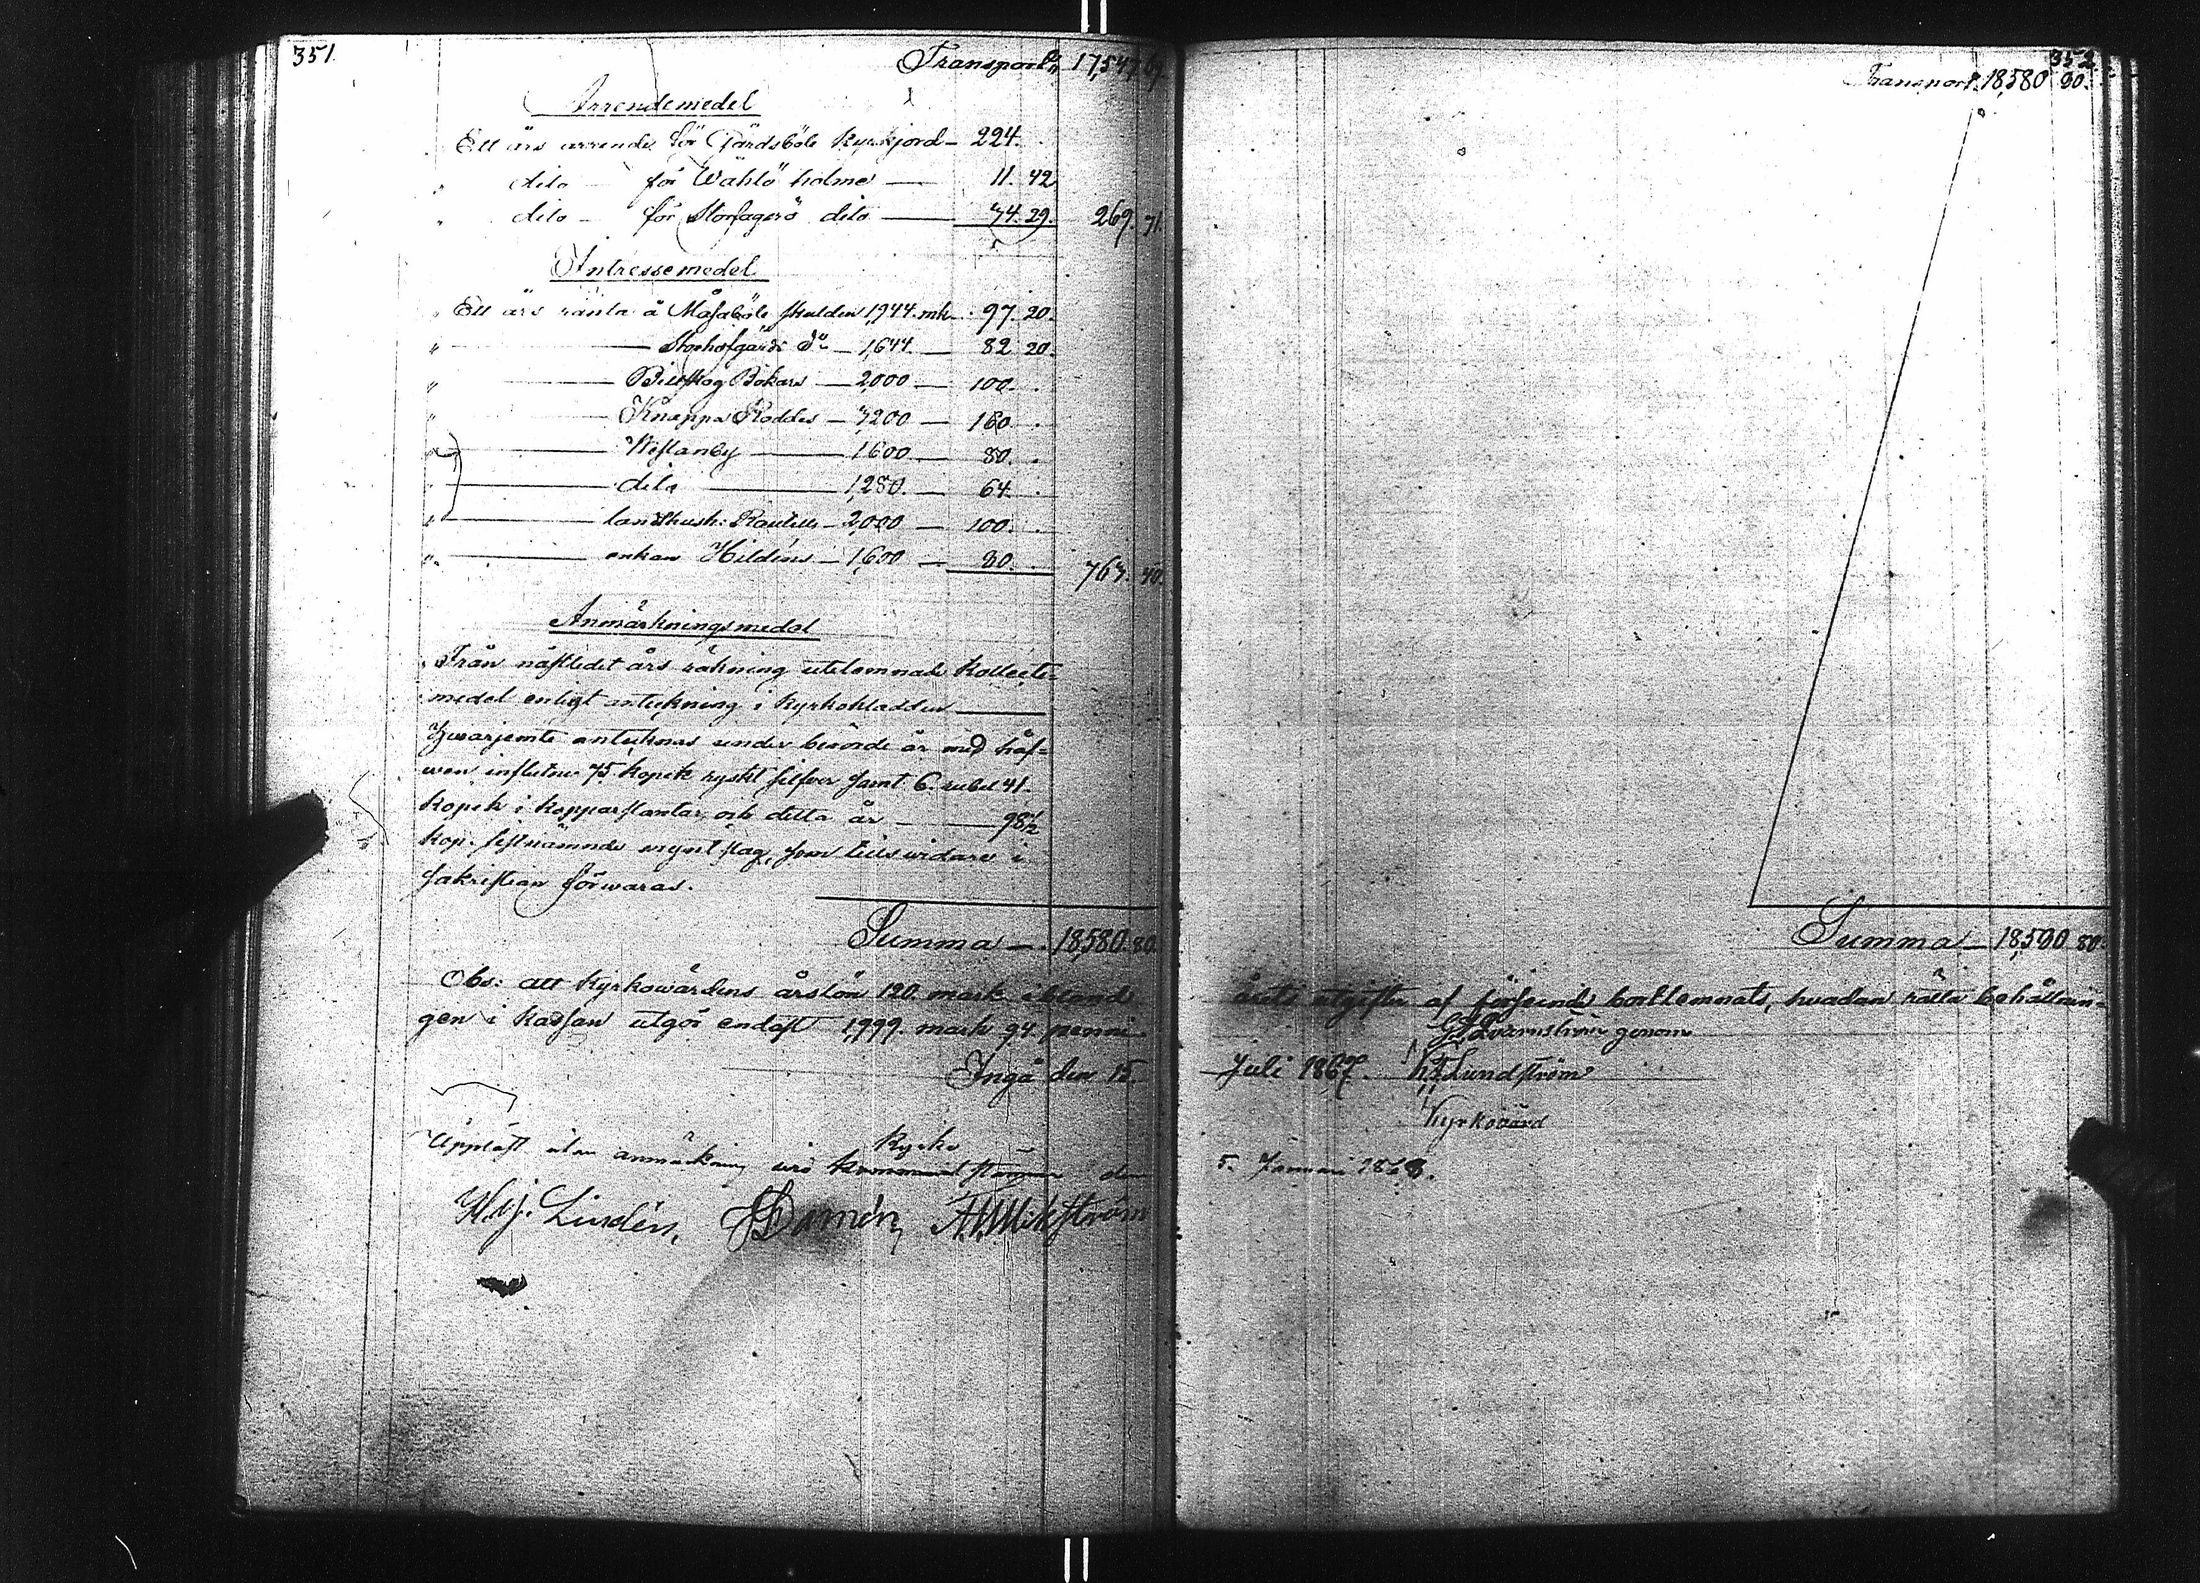 351.
Transport 17,547. 69.
Arrendemedel
Ett års arrende för Gårdsböle Kyrkjord – 224.
" dito – för Wåhlö holme — 11. 42
" dito – för Storfagerö dito — 34. 29. 269. 71.
Intressemedel
" Ett års ränta å Måsaböle skulden 1,944. mk – 97. 20.
" — Storhofgårds d:o — 1,644. — 82 20.
" — Billskog Bökars — 2,000 — 100.
" — Knapps Roddes — 3,200 — 160.
" — Westanby — 1600. — 80.
" — dito — 1,280. — 64.
" — landtush: — 2,000 — 100.
" — enkan Hildéns — 1,600 — 80. 763. 40.
Anmärkningsmedel
Från nästledet års räkning utelemnade Kollects-
medel enligt anteckning i Kyrkokladden —
Hvarjemte antecknas under berörde år med håf-
wen influtne 75 kopek ryskt silfver samt 6. rubel 41.
kopek i kopparslantar, och detta år — 98½
kop. sistnämnde mynt slag, som tills widare i
sakristian förwaras.
Summa — 18,580. 80.
Obs: att Kyrkowärdens årslön 120. mark ibland
gen i kassan utgör endast 1,999. mark 94 penni
Ingå den 15.
Uppläst utan anmärkning wid Kyrko
kommunal stämman den
Hj. Lindén, Damén, A. W. Wikström
352.
Transport. 18,580 80.
Summa — 18,580 80.
årets utgifter af förseende bortlemnats, hvadan rätta behållnin-
Qvarnström genom
Juli 1867. Lundström
Kyrkovärd
5. Januari 1868.